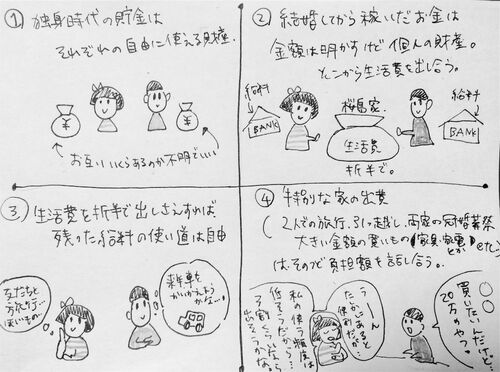 ① 独身時代の貯金は
それぞれの自由に使える財産。
¥
¥
お互いいくらあるのか不明でいい
② 結婚してから稼いだお金は
金額は明かすけど個人の財産。
そこから生活費を出し合う。
給料
BANK
桜島家
生活費
折半で。
給料
BANK
③ 生活費を折半で出しさえすれば
残った給料の使い道は自由
友だちと
旅行…
ほしいもの…
新車を
かいかえよう
かな…
④ 特別な家の出費
(2人での旅行、引っ越し、両家の冠婚葬祭
大きい金額の買いもの(家具・家電とか)etc)
は、そのつど負担額を話し合う。
〇〇
買いたいんだけど。
20万かやつ。
うーーん
たしかにあると
便利だが…
私の使う頻度は
低そうだから…
3割くらいなら
出そうかなぁ